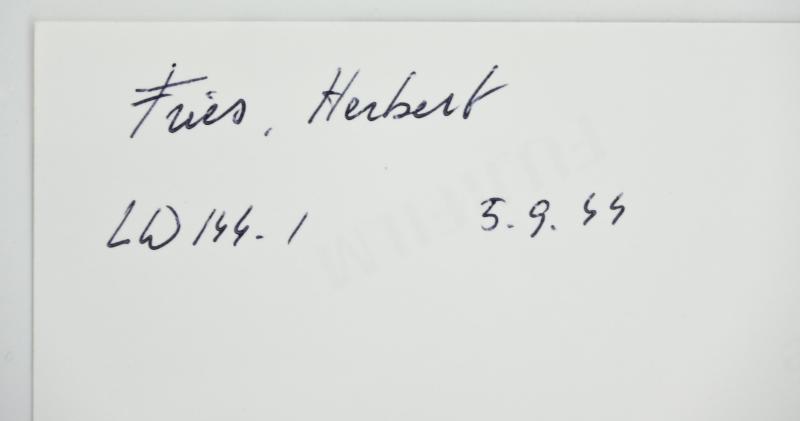 Fries, Herbert
LW 144-1 5.9.44
FUJIFILM